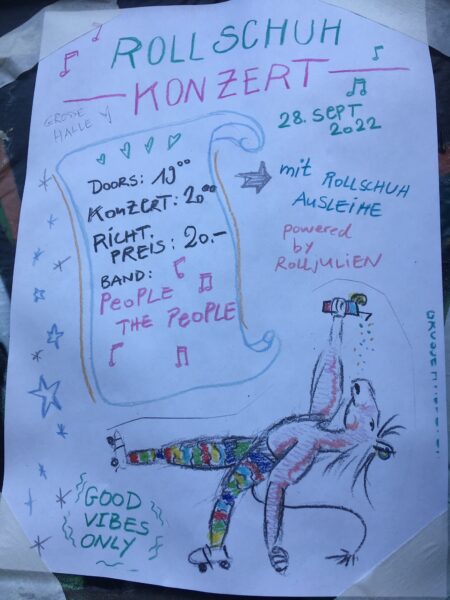 ROLLSCHUH
KONZERT
GROSSE
HALLE
28. SEPT
2022
DOORS: 19⁰⁰
KONZERT: 20⁰⁰
RICHT.
PREIS: 20.-
BAND:
PEOPLE
THE PEOPLE
mit ROLLSCHUH
AUSLEIHE
powered
by
ROLLJULIEN
GOOD
VIBES
ONLY